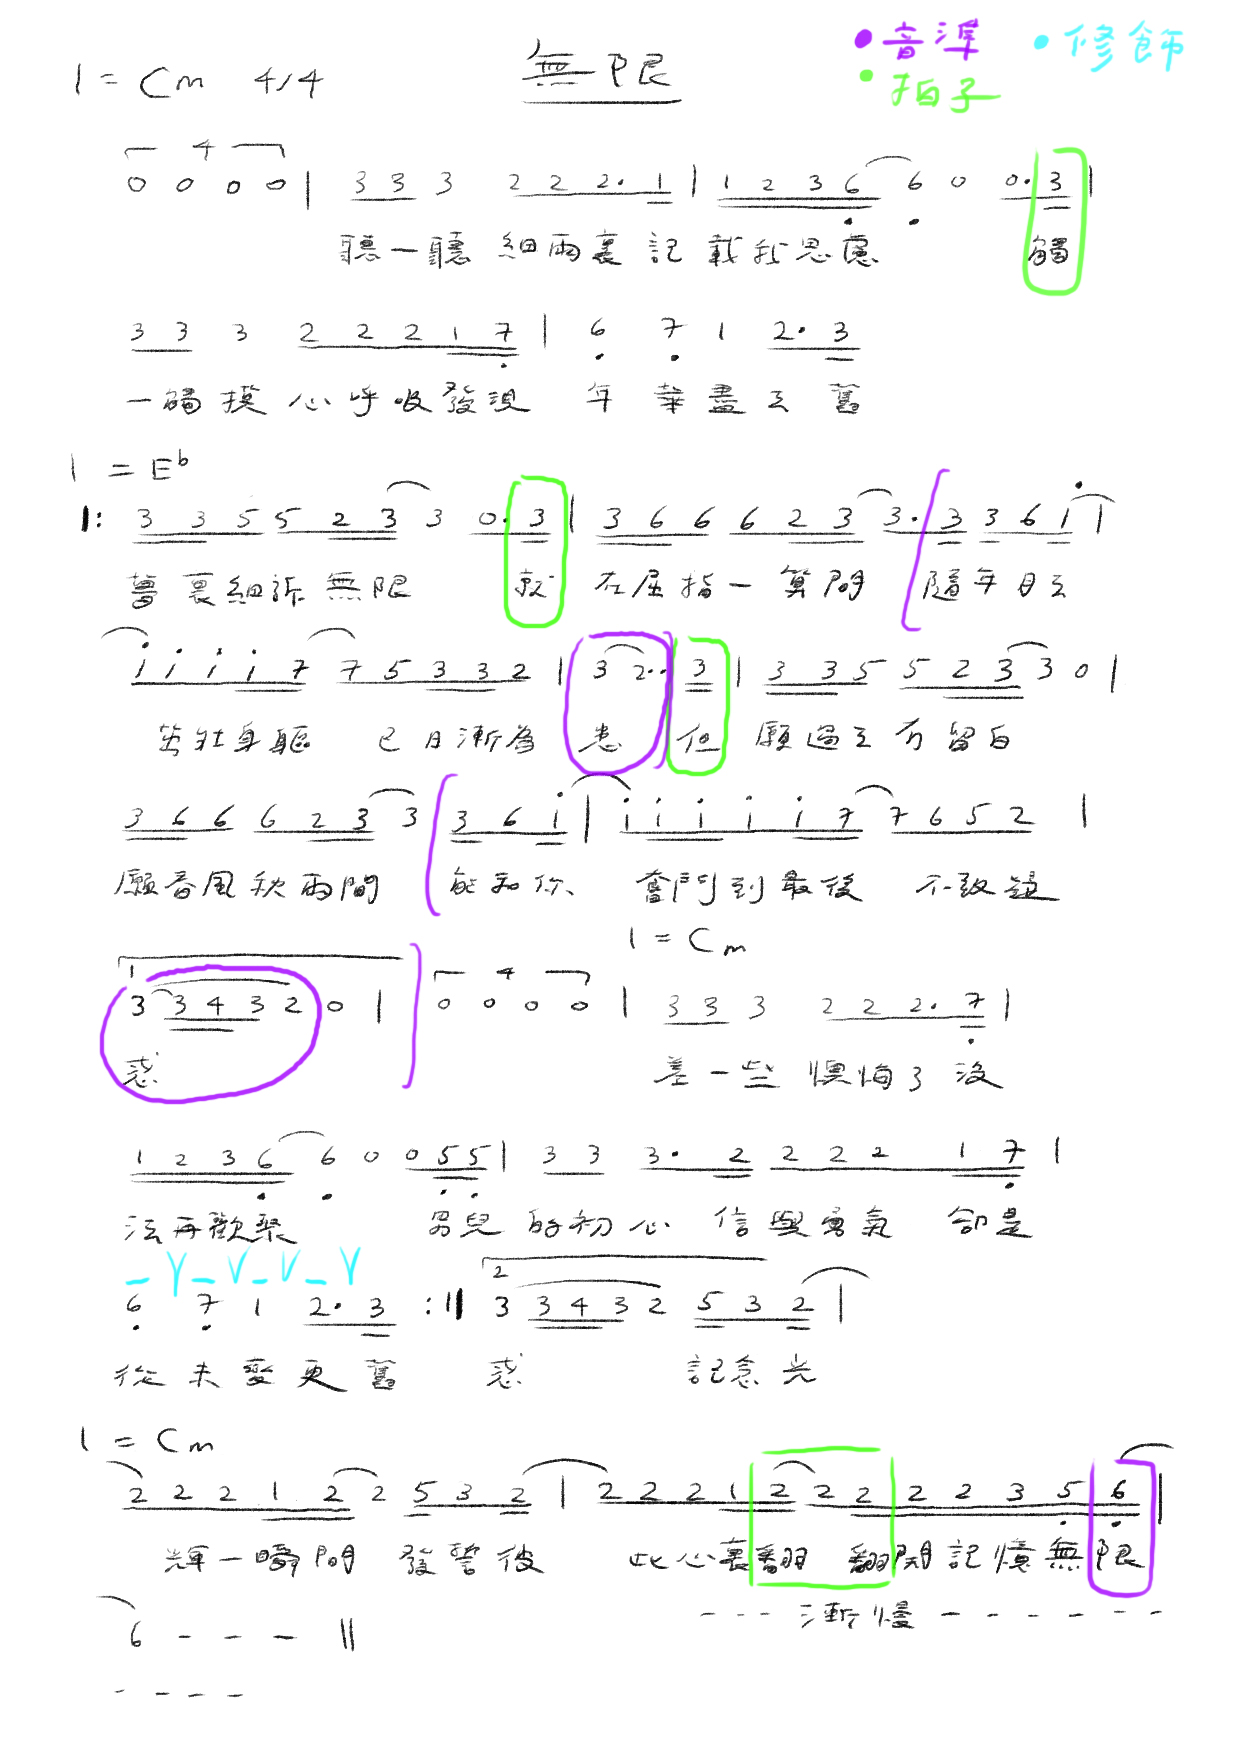 1 = Cm 4/4 無限 •音準 •修飾
•拍子
4
0 0 0 0 | 3 3 3 2 2 2· 1 | 1 2 3 6 6 0 0· 3 |
聽一聽 細雨裏記載我思慮 觸
3 3 3 2 2 2 1 7 | 6 7 1 2· 3
一觸摸心呼吸發現 年華盡去舊
1 = E♭
|: 3 3 5 5 2 3 3 0· 3 | 3 6 6 6 2 3 3· 3 3 6 i |
夢裏細訴無限 就在屈指一算間 隨年月去
i i i i 7 7 5 3 3 2 | 3 2·· 3 | 3 3 5 5 2 3 3 0 |
茁壯身軀 已日漸為患 但願過去有留白
3 6 6 6 2 3 3 3 6 i | i i i i i 7 7 6 5 2 |
願春風秋雨間 能和你 奮鬥到最後 不致疑
1 = Cm
1 4
3 3 4 3 2 0 | 0 0 0 0 | 3 3 3 2 2 2· 7 |
惑 差一些 懊悔了沒
1 2 3 6 6 0 0 5 5 | 3 3 3· 2 2 2 2 1 7 |
法再歡聚 男兒的初心 信與勇氣 卻是
_ V _ V _ V _ V
2
6 7 1 2· 3 :|| 3 3 4 3 2 5 3 2 |
從未變更舊 惑 記念光
1 = Cm
2 2 2 1 2 2 5 3 2 | 2 2 2 1 2 2 2 2 2 3 5 6 |
輝一瞬間 發誓彼 此心裏翻 翻開記憶無限
- - - 漸慢 - - - - - -
6 - - - ||
- - - -